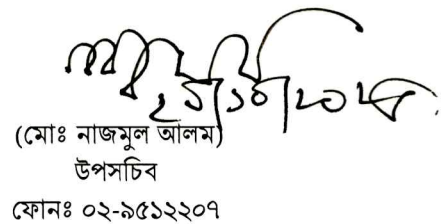 (মোঃ নাজমুল আলম)
উপসচিব
ফোনঃ ০২-৯৫১২২০৭